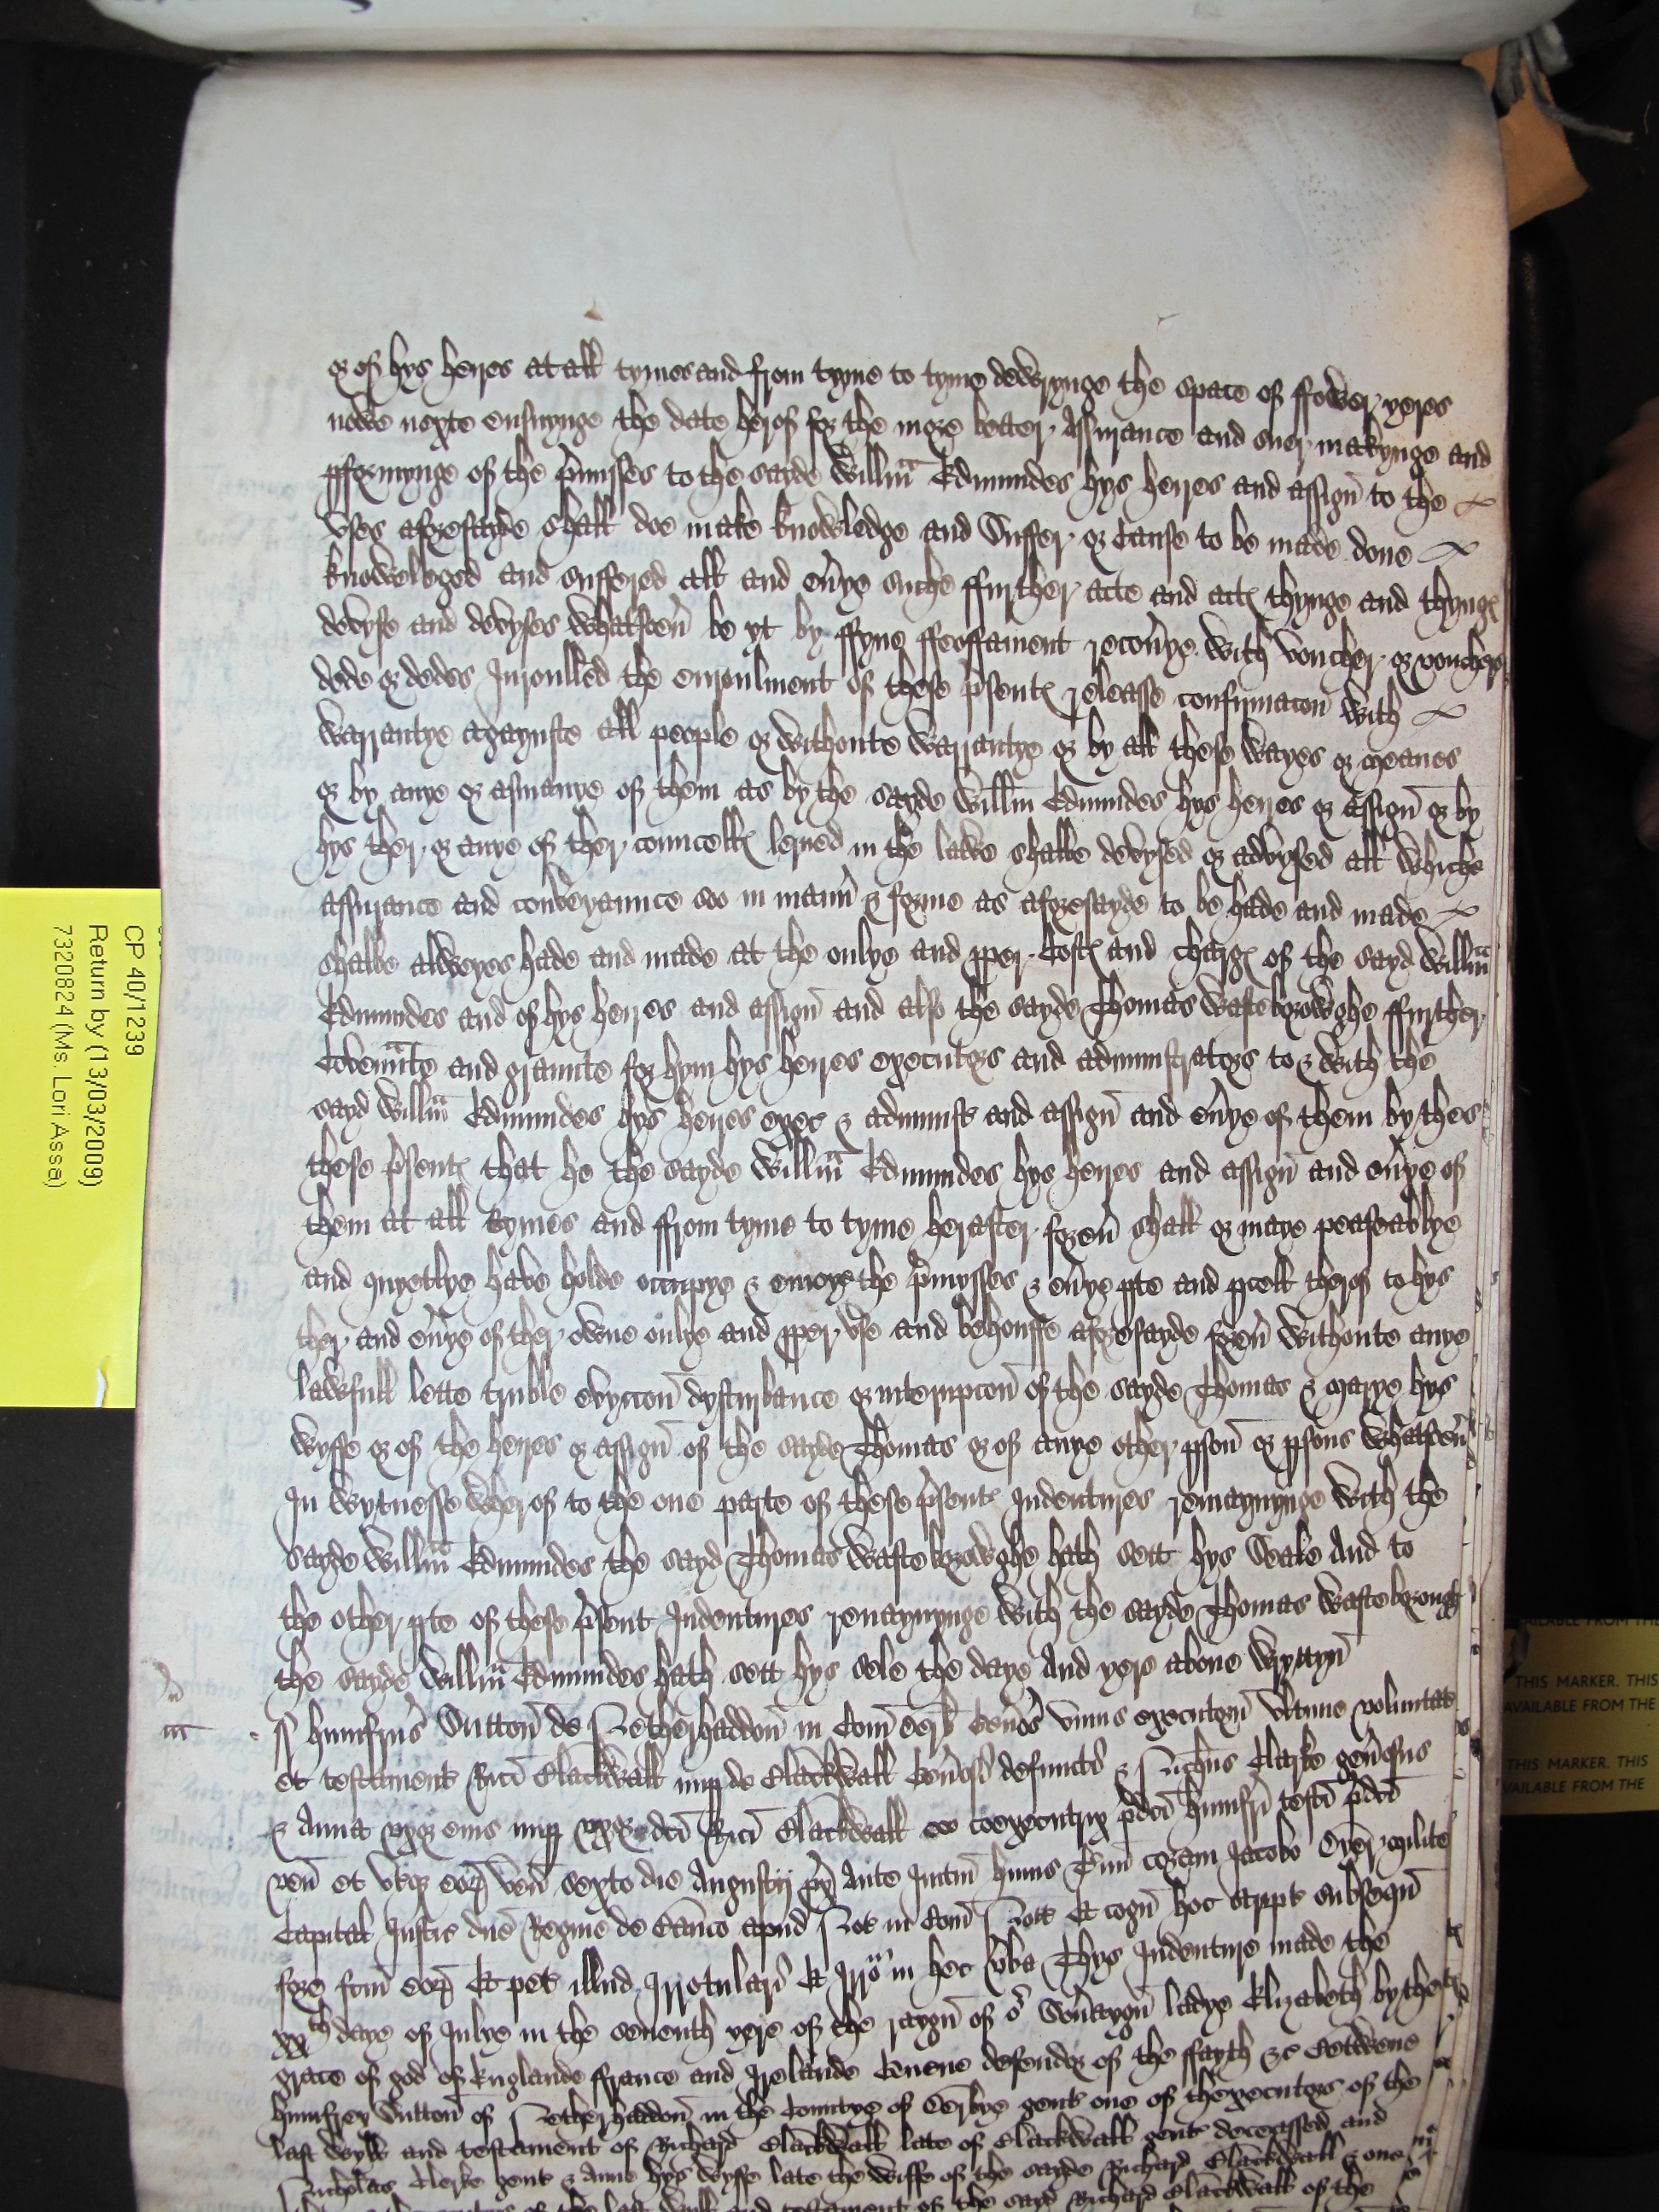 or of hys heyres at all tymes and from tyme to tyme dewrynge the space of ffower yeres
nowe nexte ensuynge the date herof for the more better assurance and suer makynge and
pformynge of the pmisses to the sayde Willm Edmundes hys heyres and assign to the
vses aforesayde shall doe make knowledge and Suffer or Cause to be made done
knowleged and suffered all and evye suche ffurther acte and acts thynge and thyngs
devyse and devyses whatsoev be yt by ffyne ffeoffament recovye with voucher or vouchers
dede or dedes Inroulled the enroulment of these psents releasse confirmacon with
warrantye agaynste all people or withoute warrantye or by all these wayes or meanes
or by anye or asmanye of them as by the sayde Willm Edmundes hys heyres or assign or by
hys ther or anye of ther councells lerned in the lawe shalbe devysed or advysed all whiche
assurance and conveyaunce soo in mann & forme as aforesayde to be hade and made
shalbe alweyes hade and made at the onlye and pper Costs and chargs of the sayd Willm
Edmundes and of hys heyres and assign and also the sayde Thomas Wasteborowghe ffurther
Covenate and graunte for hym hys heyres executors and administrators to & with the
sayd Willm Edmundes hys heyres exec & administ and assign and evye of them by thes
these psents that he the sayde Willm Edmundes hys heyres and assign and evye of
them at all tymes and ffrom tyme to tyme herafter forev shall or maye peaseablye
and quyetlye have holde occupye & enioye the pmysses & evye pte and pcell therof to hys
ther and evye of ther owne onlye and pper vse and behouffe aforesayde forev withoute anye
lawfull lette truble evyccon dysturbance or interupcon of the sayde Thomas & Marye hys
wyffe or of the heyres or assign of the sayde Thomas or of anye other pson or psons whatsoev
In wytnesse wherof to the one parte of these psents Indentures remaynynge with the
sayde Willm Edmundes the sayd Thomas Wasteborowghe hath sett hys Seale And to
the other pte of these psent Indentures remaynynge with the sayde Thomas Wasteborough
the sayde Willm Edmundes hath sett hys sele the daye And yere above wryttyn
Humfrus Sutton de Netherhaddon in Com Derb Genos vnus executorum vltime voluntat
et testament Rici Blackwall nup de Blackwall Genosi defuncti & Nichus Clarke genosus
& Anna vxor eius nup vxor dci Rici Blackwall ac coexecutrix pdci Humfri testi pdci
ven et vterq eor ven sexto die Augustij px Ante Initiu huius Tmi coram Jacobo Dyer milite
Capital Justic dne Regine de Banco apud in Com Nott Et cogn hoc scrpt subsequ
fore fcm eor Et pet illud Irrotulari Et Irro in hec vba Thys Indenture made the
xxth daye of Julye in the seventh yere of the raygn of o Soveraygn ladye Elizabeth by the
grace of god of Englande ffrance and Irelande Quene defendor of the ffayth &c Betwene
Humfrey Sutton of Netherhaddon in the Countye of Derbye gent one of thexecutors of the
last wyll and testament of Richard Blackwall late of Blackwall gent deceassed and
Nicholas Clerke gent & Anne hys wyffe late the wiffe of the sayde Richard Blackwall & one
of the last wyll and testament of the sayd Richard Blackwall of the
CP 40/1239
Return by (13/03/2009)
7320824 (Ms. Lori Assa)
AVAILABLE FROM THE
THIS MARKER. THIS
AVAILABLE FROM THE
THIS MARKER. THIS
AVAILABLE FROM THE